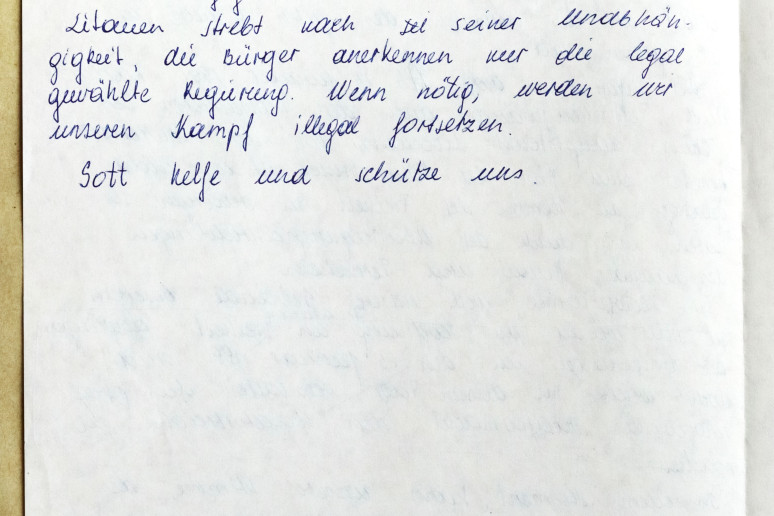 Litauen strebt nach seiner Unabhän-
gigkeit, die Bürger anerkennen nur die legal
gewählte Regierung. Wenn nötig, werden wir
unseren Kampf illegal fortsetzen.
Gott helfe und schütze uns.